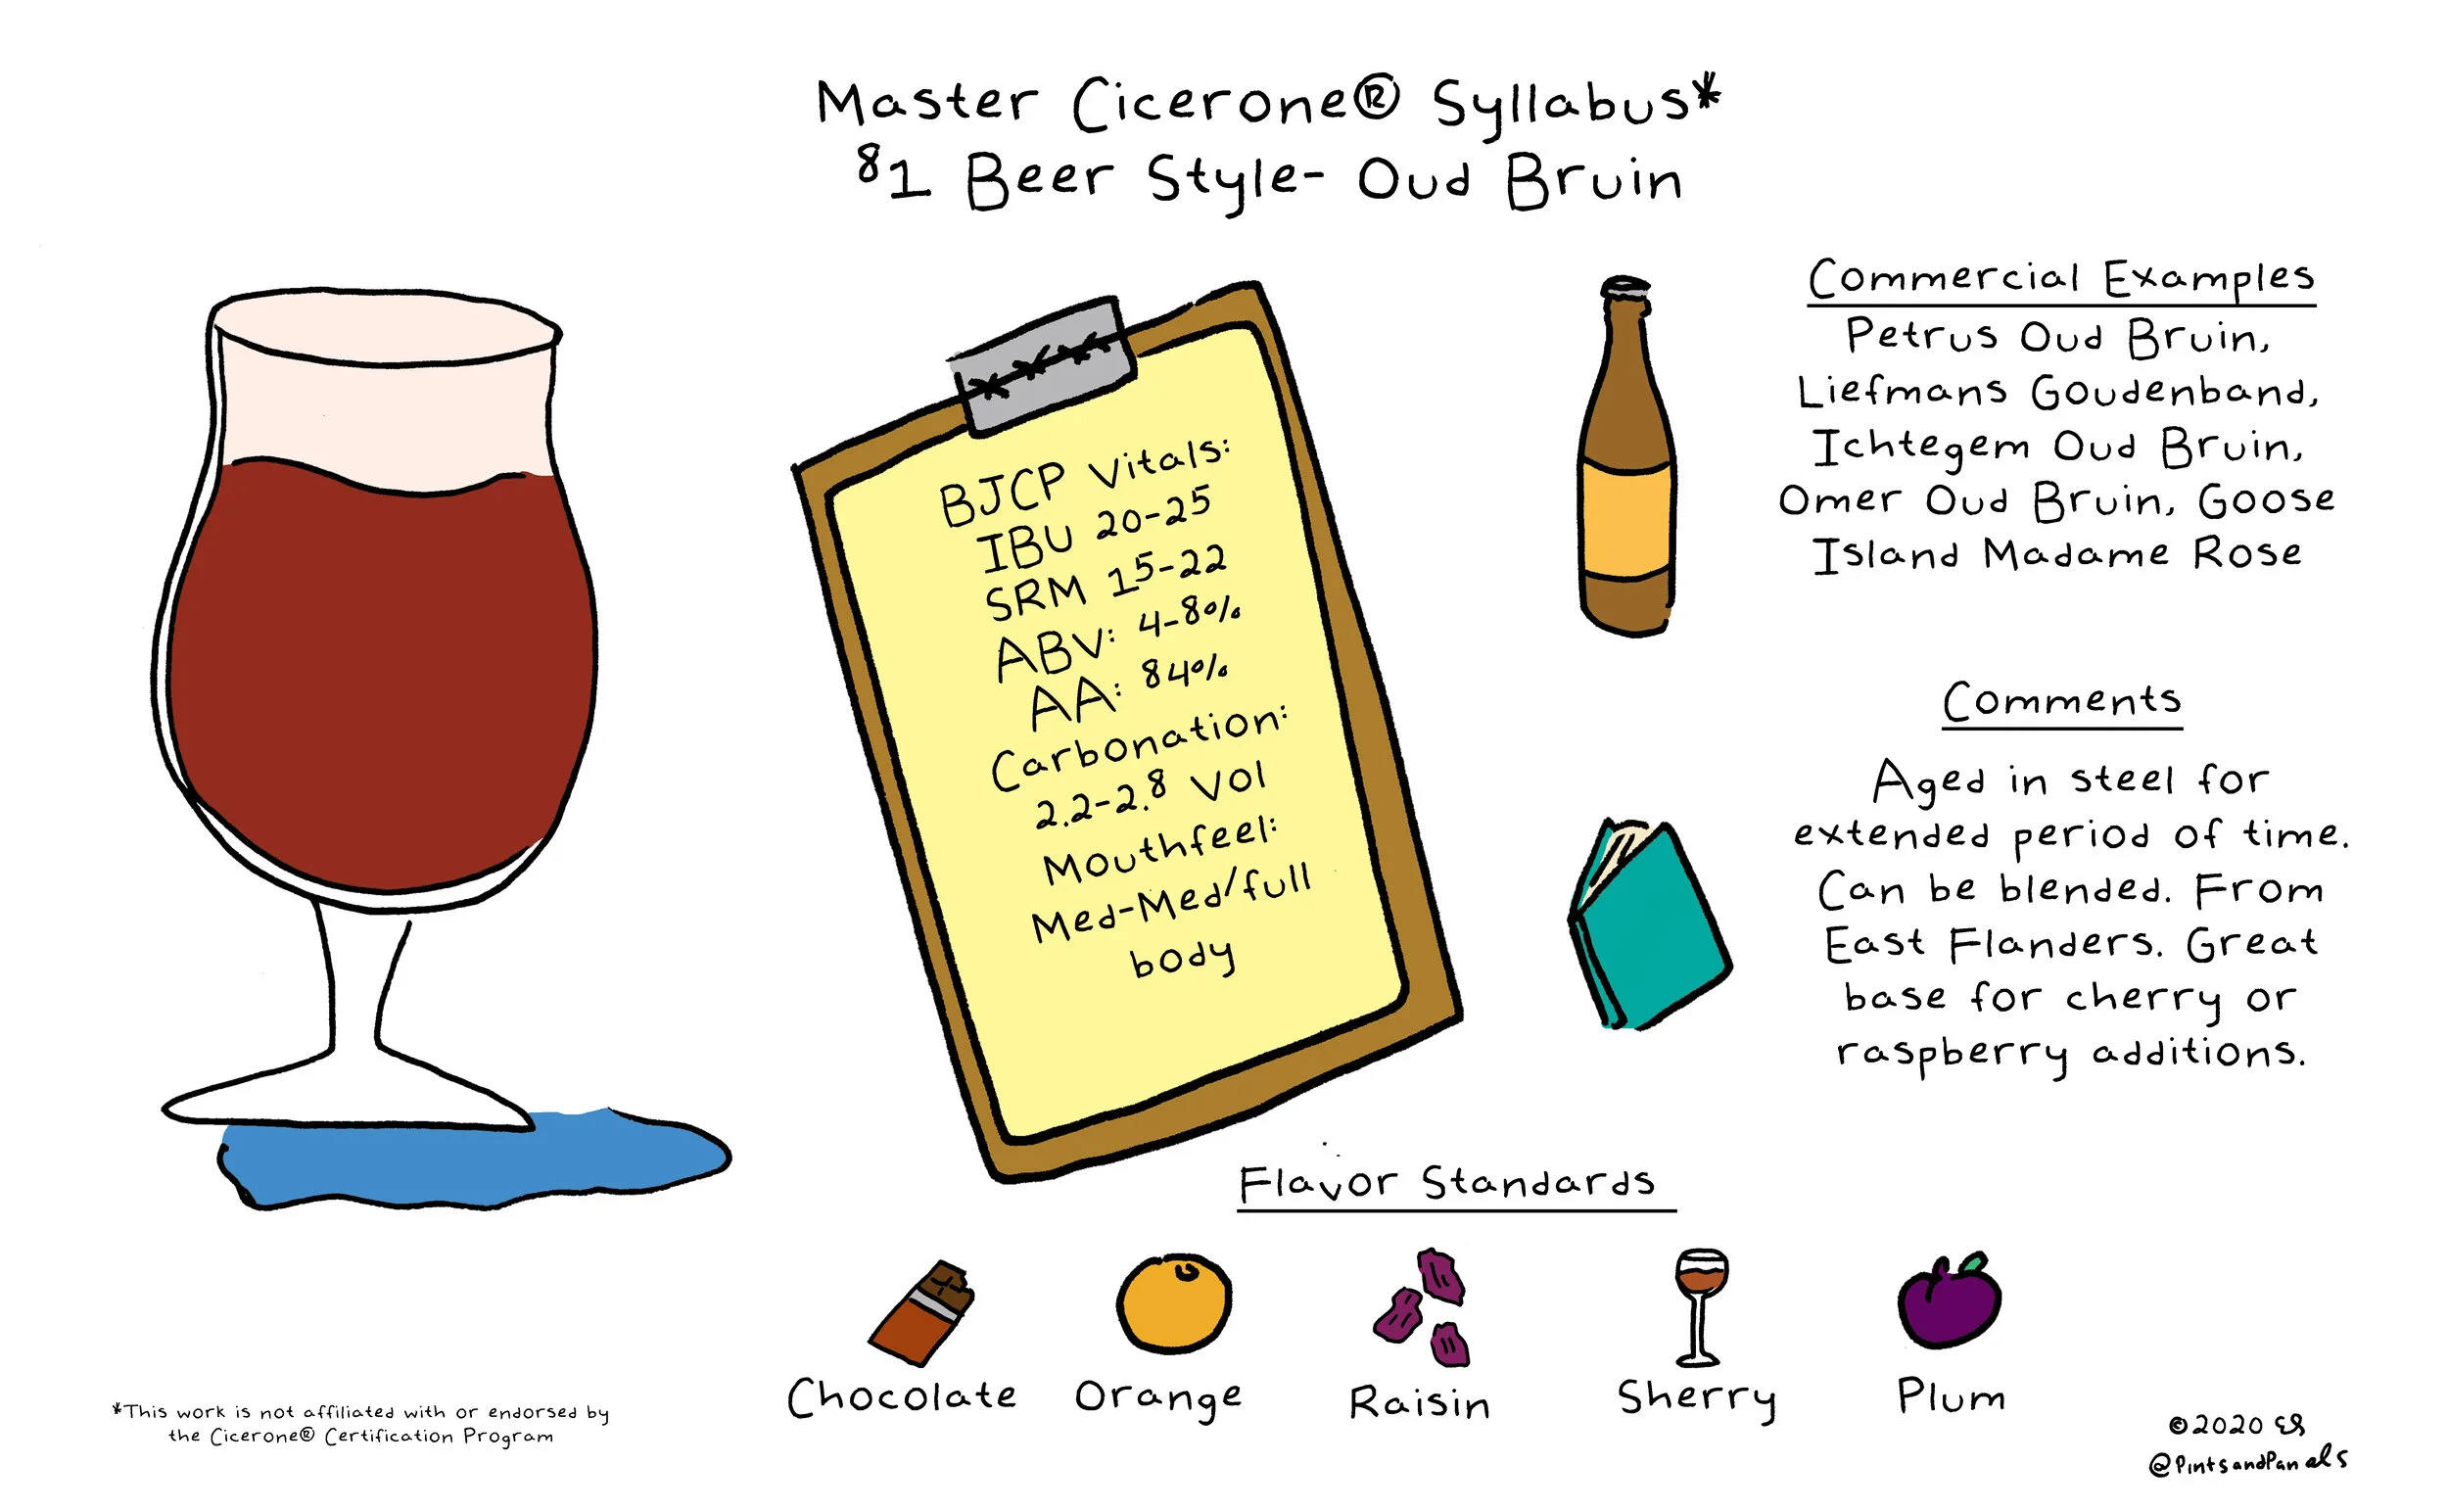 Master Cicerone® Syllabus*
81 Beer Style- Oud Bruin
BJCP Vitals:
IBU 20-25
SRM 15-22
ABV: 4-8%
AA: 84%
Carbonation:
2.2-2.8 Vol
Mouthfeel:
Med-Med/full
body
Commercial Examples
Petrus Oud Bruin,
Liefmans Goudenband,
Ichtegem Oud Bruin,
Omer Oud Bruin, Goose
Island Madame Rose
Comments
Aged in steel for
extended period of time.
Can be blended. From
East Flanders. Great
base for cherry or
raspberry additions.
Flavor Standards
Chocolate
Orange
Raisin
Sherry
Plum
*This work is not affiliated with or endorsed by
the Cicerone® Certification Program
©2020 ES
@PintsandPanels